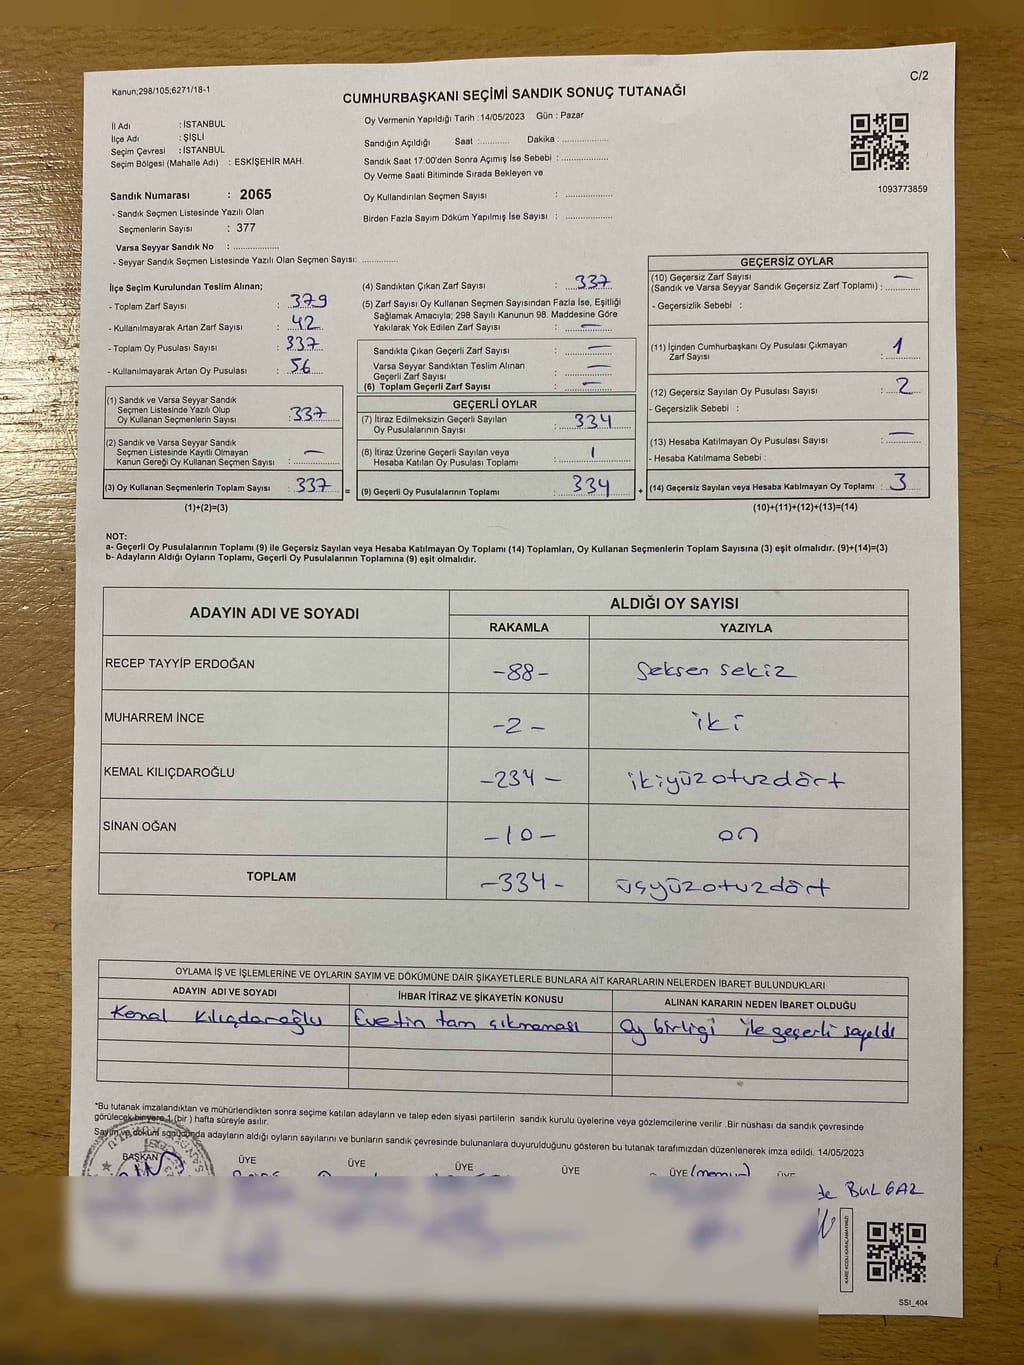 C/2
Kanun;298/105;6271/18-1
CUMHURBAŞKANI SEÇİMİ SANDIK SONUÇ TUTANAĞI
İl Adı : İSTANBUL
İlçe Adı : ŞİŞLİ
Seçim Çevresi : İSTANBUL
Seçim Bölgesi (Mahalle Adı) : ESKİŞEHİR MAH.
Sandık Numarası : 2065
- Sandık Seçmen Listesinde Yazılı Olan
Seçmenlerin Sayısı : 377
Varsa Seyyar Sandık No : ..................
- Seyyar Sandık Seçmen Listesinde Yazılı Olan Seçmen Sayısı: .............
Oy Vermenin Yapıldığı Tarih :14/05/2023 Gün : Pazar
Sandığın Açıldığı Saat :........... Dakika :................
Sandık Saat 17:00'den Sonra Açımış İse Sebebi :................
Oy Verme Saati Bitiminde Sırada Bekleyen ve
Oy Kullandırılan Seçmen Sayısı : ................
Birden Fazla Sayım Döküm Yapılmış İse Sayısı : ................
1093773859
İlçe Seçim Kurulundan Teslim Alınan;
- Toplam Zarf Sayısı : 379
- Kullanılmayarak Artan Zarf Sayısı : 42
- Toplam Oy Pusulası Sayısı : 337
- Kullanılmayarak Artan Oy Pusulası : 56
(1) Sandık ve Varsa Seyyar Sandık
Seçmen Listesinde Yazılı Olup
Oy Kullanan Seçmenlerin Sayısı : 337
(2) Sandık ve Varsa Seyyar Sandık
Seçmen Listesinde Kayıtlı Olmayan
Kanun Gereği Oy Kullanan Seçmen Sayısı : —
(3) Oy Kullanan Seçmenlerin Toplam Sayısı : 337 =
(1)+(2)=(3)
(4) Sandıktan Çıkan Zarf Sayısı : 337
(5) Zarf Sayısı Oy Kullanan Seçmen Sayısından Fazla İse, Eşitliği
Sağlamak Amacıyla; 298 Sayılı Kanunun 98. Maddesine Göre
Yakılarak Yok Edilen Zarf Sayısı : —
Sandıkta Çıkan Geçerli Zarf Sayısı : —
Varsa Seyyar Sandıktan Teslim Alınan
Geçerli Zarf Sayısı : —
(6) Toplam Geçerli Zarf Sayısı : —
GEÇERLİ OYLAR
(7) İtiraz Edilmeksizin Geçerli Sayılan
Oy Pusulalarının Sayısı : 334
(8) İtiraz Üzerine Geçerli Sayılan veya
Hesaba Katılan Oy Pusulası Toplamı : 1
(9) Geçerli Oy Pusulalarının Toplamı : 334 +
GEÇERSİZ OYLAR
(10) Geçersiz Zarf Sayısı
(Sandık ve Varsa Seyyar Sandık Geçersiz Zarf Toplamı) : —
- Geçersizlik Sebebi :
(11) İçinden Cumhurbaşkanı Oy Pusulası Çıkmayan
Zarf Sayısı : 1
(12) Geçersiz Sayılan Oy Pusulası Sayısı : 2
- Geçersizlik Sebebi :
(13) Hesaba Katılmayan Oy Pusulası Sayısı : —
- Hesaba Katılmama Sebebi :
(14) Geçersiz Sayılan veya Hesaba Katılmayan Oy Toplamı : 3
(10)+(11)+(12)+(13)=(14)
NOT:
a- Geçerli Oy Pusulalarının Toplamı (9) ile Geçersiz Sayılan veya Hesaba Katılmayan Oy Toplamı (14) Toplamları, Oy Kullanan Seçmenlerin Toplam Sayısına (3) eşit olmalıdır. (9)+(14)=(3)
b- Adayların Aldığı Oyların Toplamı, Geçerli Oy Pusulalarının Toplamına (9) eşit olmalıdır.
ADAYIN ADI VE SOYADI ALDIĞI OY SAYISI
RAKAMLA YAZIYLA
RECEP TAYYİP ERDOĞAN -88- Seksen sekiz
MUHARREM İNCE -2- iki
KEMAL KILIÇDAROĞLU -234- ikiyüzotuzdört
SİNAN OĞAN -10- on
TOPLAM -334- üçyüzotuzdört
OYLAMA İŞ VE İŞLEMLERİNE VE OYLARIN SAYIM VE DÖKÜMÜNE DAİR ŞİKAYETLERLE BUNLARA AİT KARARLARIN NELERDEN İBARET BULUNDUKLARI
ADAYIN ADI VE SOYADI İHBAR İTİRAZ VE ŞİKAYETİN KONUSU ALINAN KARARIN NEDEN İBARET OLDUĞU
Kemal Kılıçdaroğlu Evetin tam çıkmaması Oy birliği ile geçerli sayıldı
*Bu tutanak imzalandıktan ve mühürlendikten sonra seçime katılan adayların ve talep eden siyasi partilerin sandık kurulu üyelerine veya gözlemcilerine verilir .Bir nüshası da sandık çevresinde
görülecek bir yere 1 (bir ) hafta süreyle asılır.
Sayım ve döküm sonucunda adayların aldığı oyların sayılarını ve bunların sandık çevresinde bulunanlara duyurulduğunu gösteren bu tutanak tarafımızdan düzenlenerek imza edildi. 14/05/2023
BAŞKAN ÜYE ÜYE ÜYE ÜYE ÜYE (memur) ÜYE
BULGAZ
KARE KODU KARALAMAYINIZ!
SSI_404